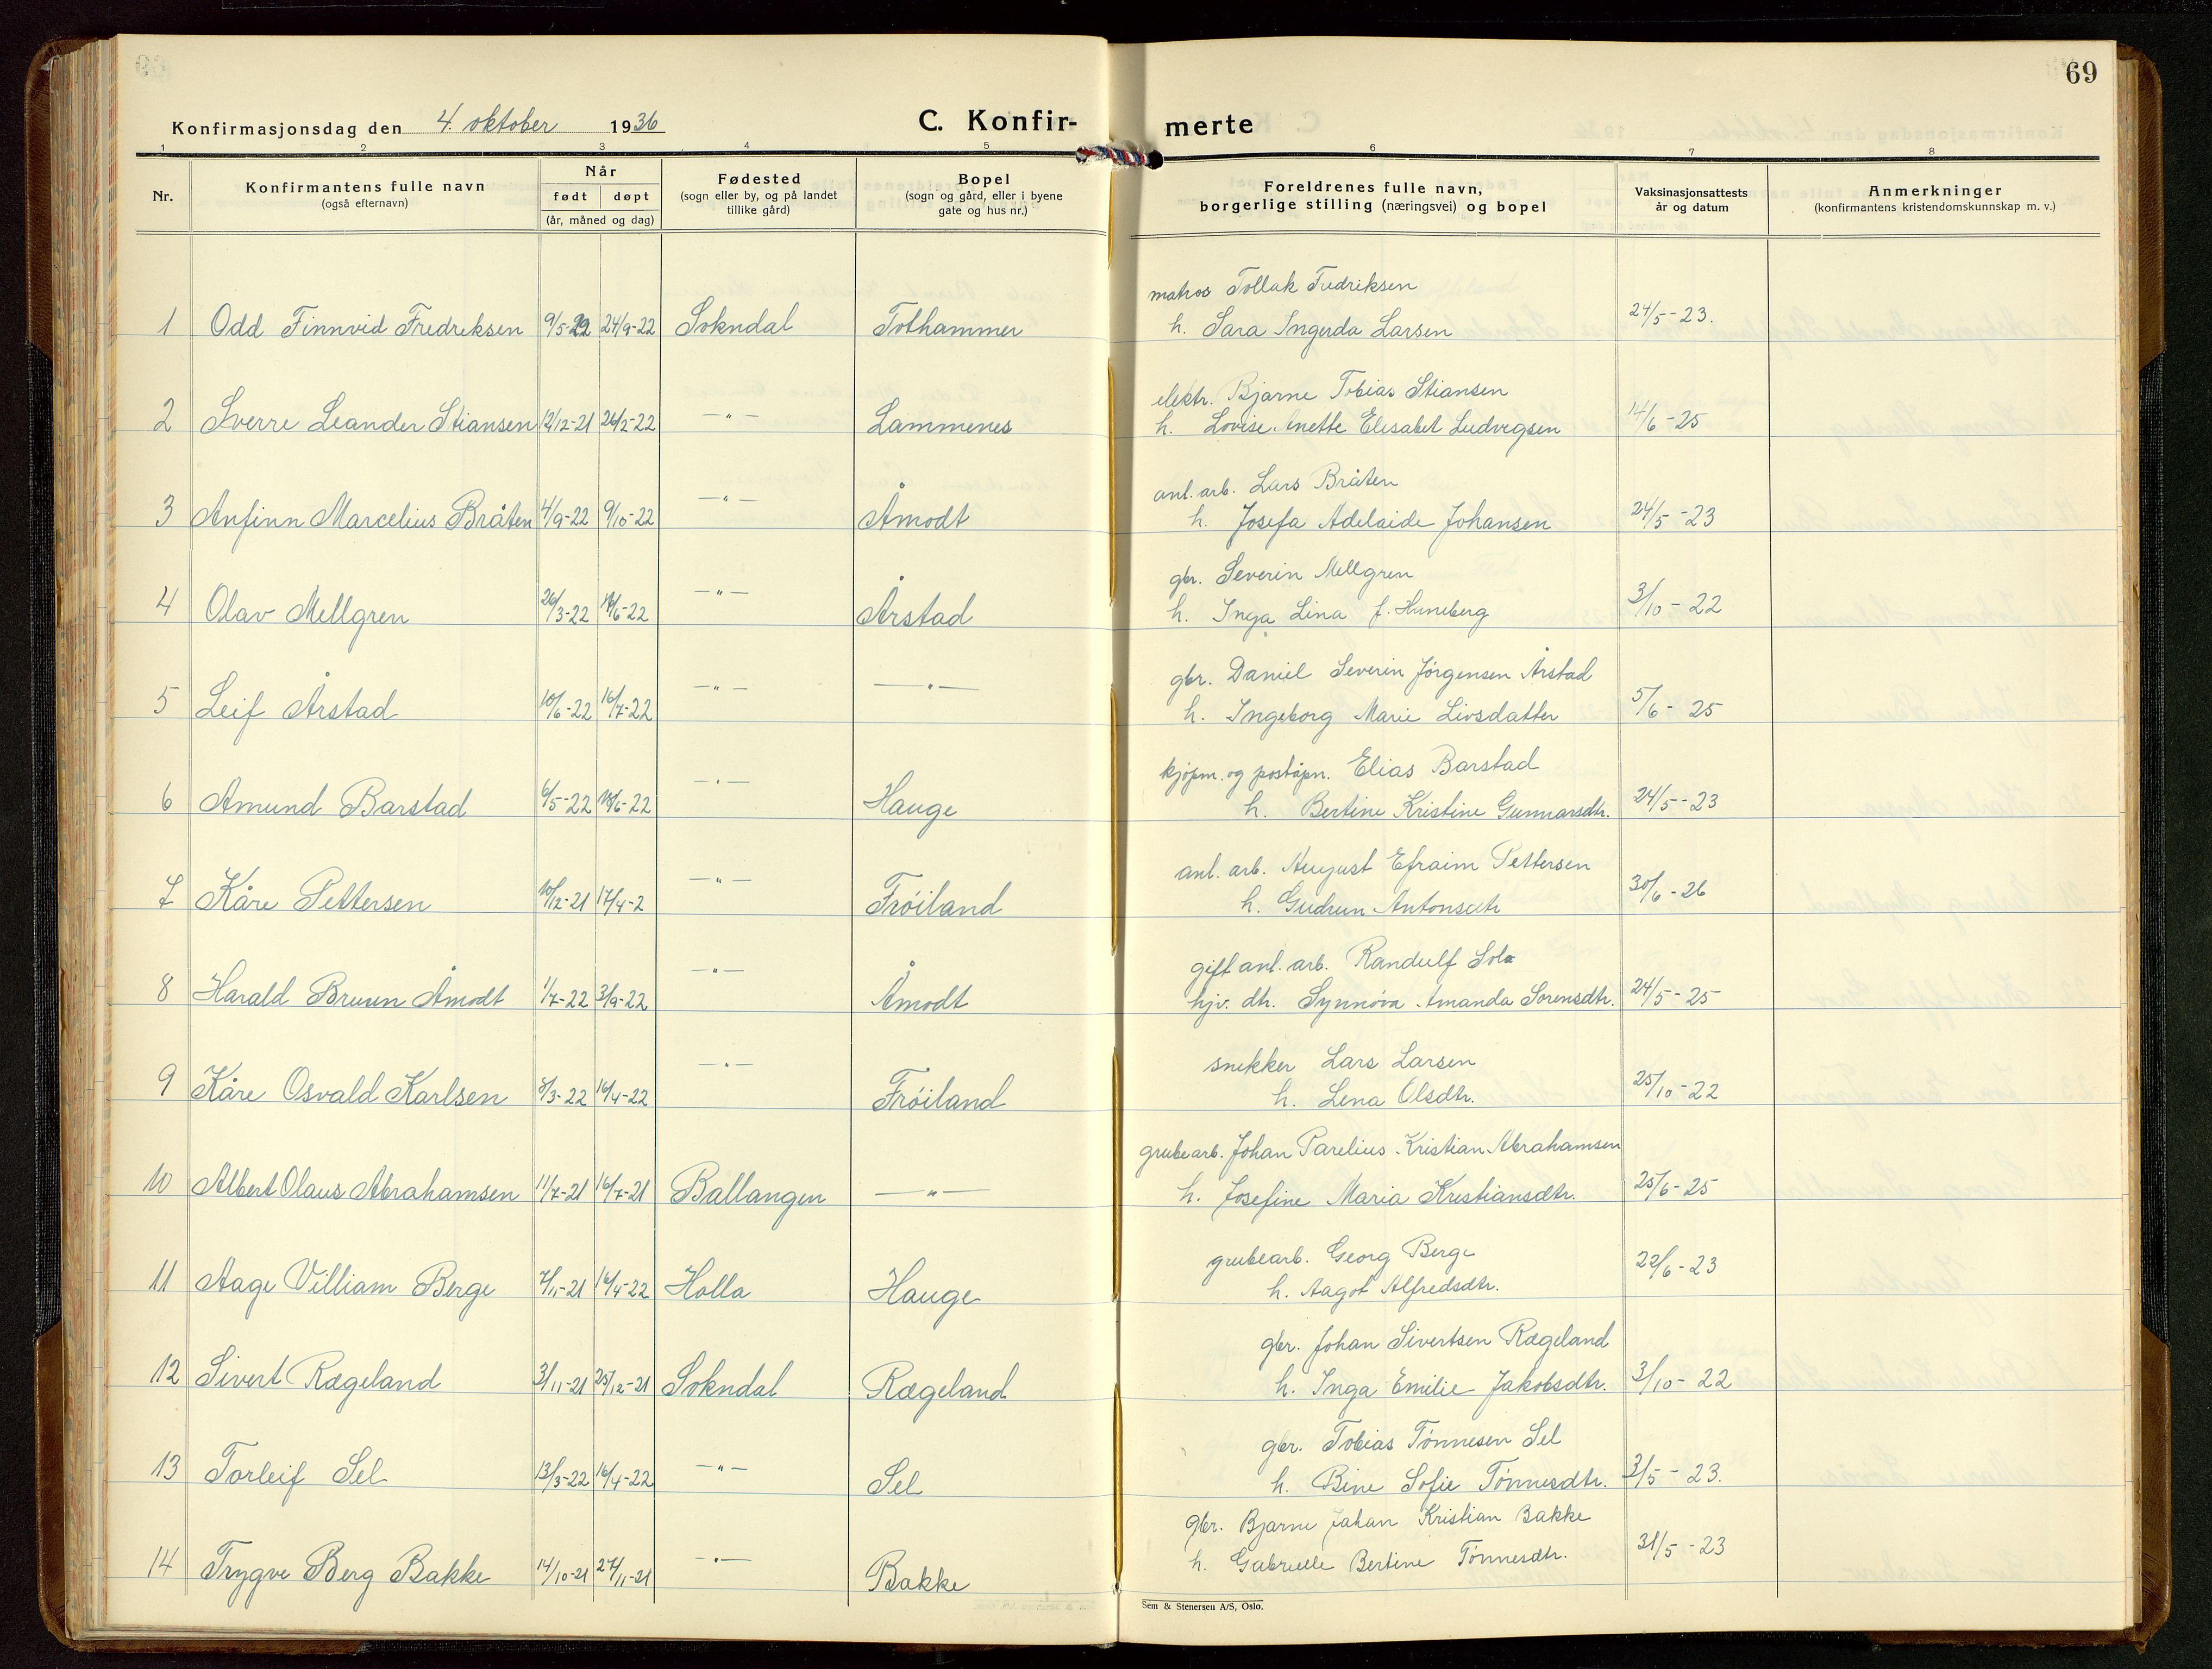 69
Konfirmasjonsdag den 4. oktober 1936
C. Konfir-
merte
1 2 3 4 5 6 7 8
Nr.
Konfirmantens fulle navn
(også efternavn)
Når
født døpt
(år, måned og dag)
Fødested
(sogn eller by, og på landet
tillike gård)
Bopel
(sogn og gård, eller i byene
gate og hus nr.)
Foreldrenes fulle navn,
borgerlige stilling (næringsvei) og bopel
Vaksinasjonsattests
år og datum
Anmerkninger
(konfirmantens kristendomskunnskap m. v.)
matros Tollak Fredriksen
1 Odd Finnvid Fredriksen 9/5-22 24/9-22 Sokndal Tothammer h. Sara Ingerda Larsen 24/5-23.
elektr. Bjarne Tobias Stiansen
2 Sverre Leander Stiansen 12/12-21 26/2-22 —"— Lammenes h. Lovise Anette Elisabet Ludvigsen 14/6-25
anl. arb. Lars Bråten
3 Anfinn Marcelius Bråten 4/9-22 9/10-22 —"— Åmodt h. Josefa Adelaide Johansen 24/5-23
gbr. Severin Mellgren
4 Olav Mellgren 26/3-22 /6-22 —"— Årstad h. Inga Lina f. Huneberg 3/10-22
gbr. Daniel Severin Jørgensen Årstad
5 Leif Årstad 10/6-22 16/7-22 —"— —"— h. Ingeborg Marie Livsdatter 5/6-25
kjøpm. og poståpn. Elias Barstad
6 Amund Barstad 6/5-22 18/6-22 —"— Hauge h. Bertine Kristine Gunnarsdtr. 24/5-23
anl. arb. August Efraim Pettersen
7 Kåre Pettersen 10/12-21 17/4-2 —"— Frøiland h. Gudrun Antonsdtr 30/6-26
gift anl. arb. Randulf Sola
8 Harald Bruun Åmodt 1/7-22 3/9-22 —"— Åmodt hjv. dtr. Synnøva Amanda Sorensdtr. 24/5-25
snekker Lars Larsen
9 Kåre Osvald Karlsen 8/3-22 16/4-22 —"— Frøiland h. Lena Olsdtr. 25/10-22
grubearb. Johan Parelius Kristian Abrahamsen
10 Albert Olaus Abrahamsen 11/7-21 16/7-21 Ballangen —"— h. Josefine Maria Kristiansdtr. 25/6-25
grubearb. Georg Berge
11 Aage Villiam Berge 7/11-21 16/4-22 Holla Hauge h. Aagot Alfredsdtr. 22/6-23
gbr. Johan Sivertsen Rægeland
12 Sivert Rægeland 3/11-21 25/12-21 Sokndal Rægeland h. Inga Emilie Jakobsdtr. 3/10-22
gbr. Tobias Tønnesen Sel
13 Torleif Sel 13/3-22 16/4-22 —"— Sel h. Bine Sofie Tønnesdtr. 3/5-23.
gbr. Bjarne Johan Kristian Bakke
14 Trygve Berg Bakke 14/10-21 27/11-21 —"— Bakke h. Gabrielle Bertine Tønnesdtr. 31/5-23
Sem & Stenersen A/S, Oslo.